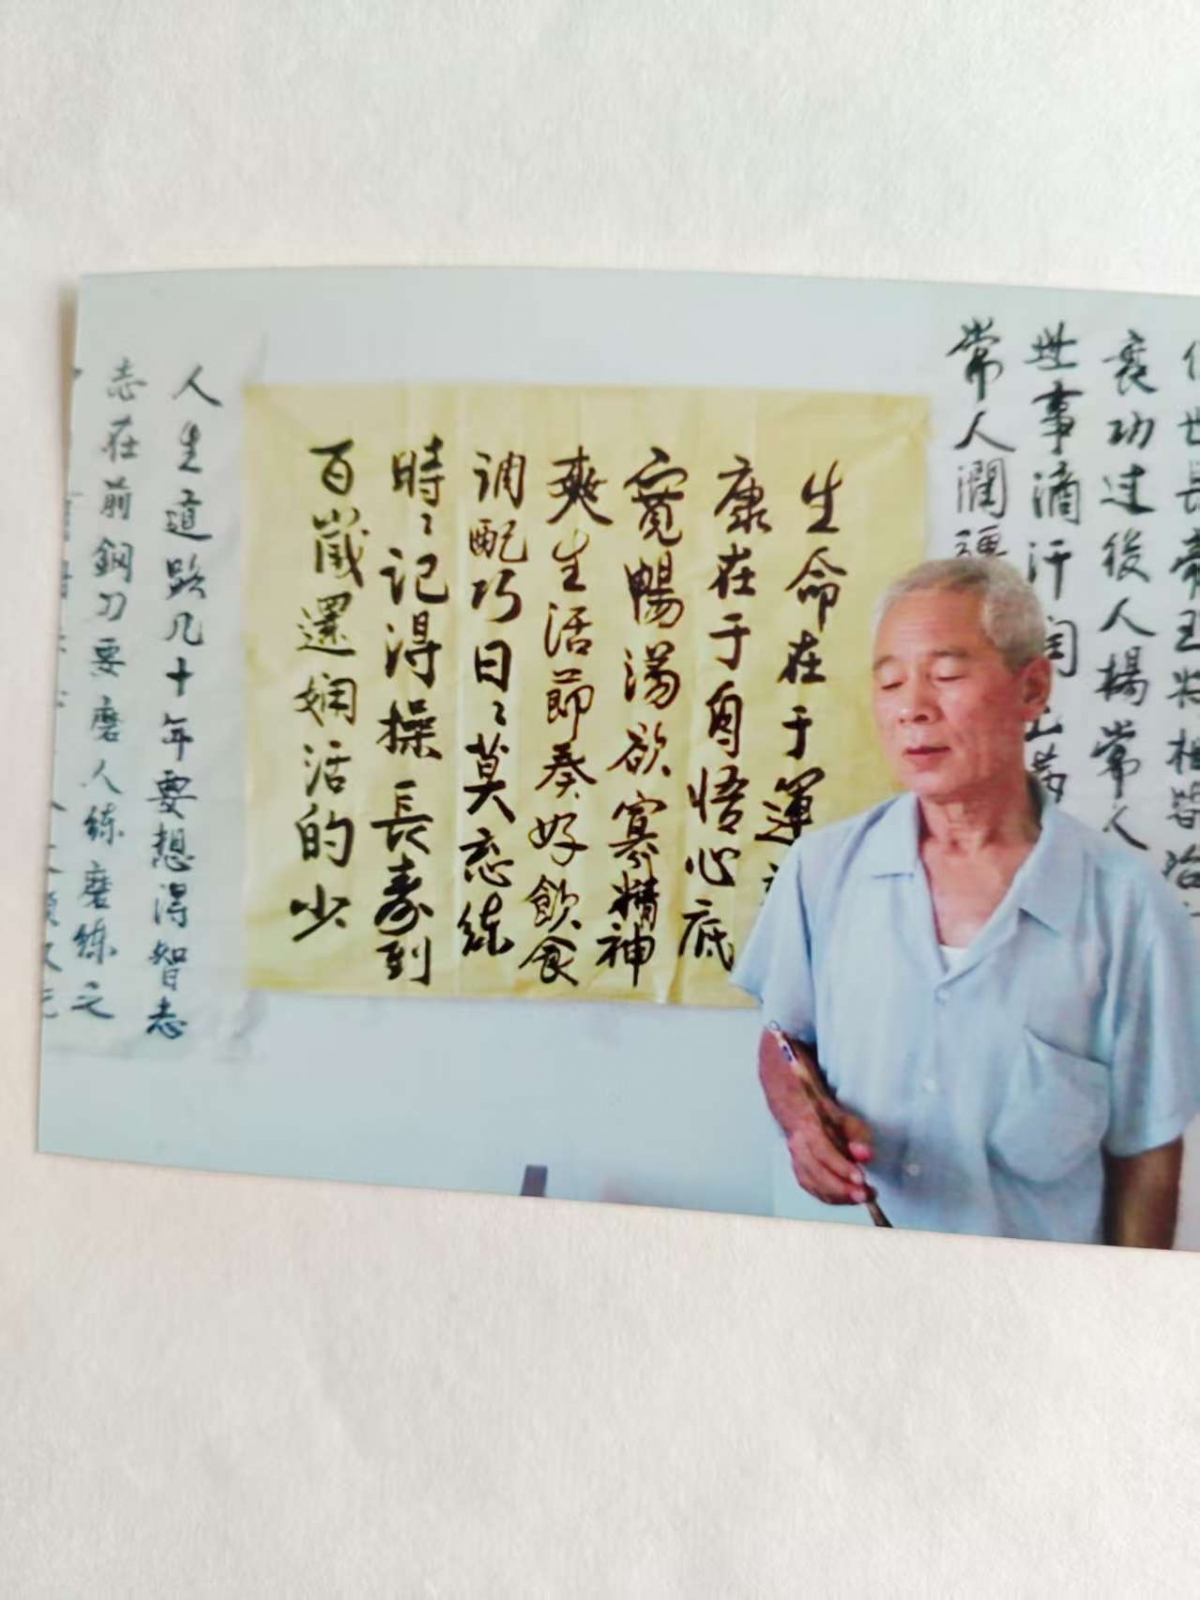 世長帝王将相皆治
衰功过後人楊常人
世事滴汗
常人潤
生命在于運
康在于自悟心底
寬暢湯欲寡精神
爽生活節奏好飲食
调配巧日〻莫忘练
時〻记得操長寿到
百歲還娴活的少
人生道路几十年要想得智志
志在前鋼刀要磨人練磨練之